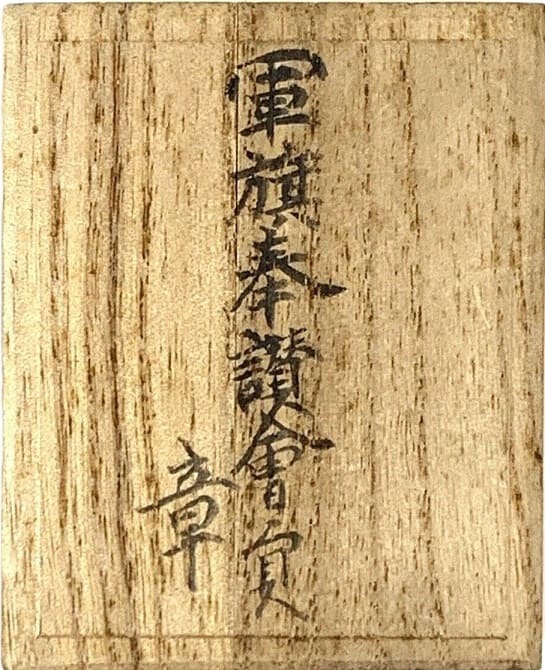 軍旗奉讃會員
章